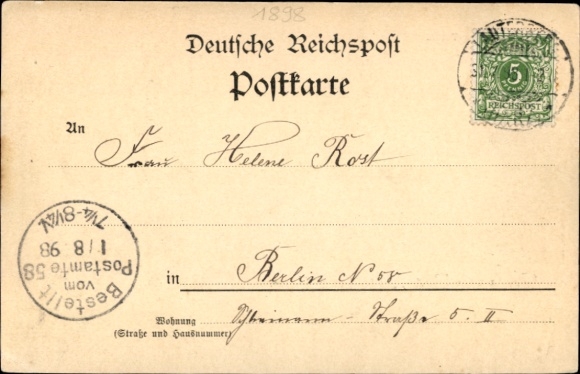 1898
Deutsche Reichspost
Postkarte
5
REICHSPOST
An
Frau Helene Rost
Bestellt
vom
Postamte 58
1/8.98
7¼-8½N
in Berlin N 58
Wohnung
(Straße und Hausnummer)
Straße 5. II